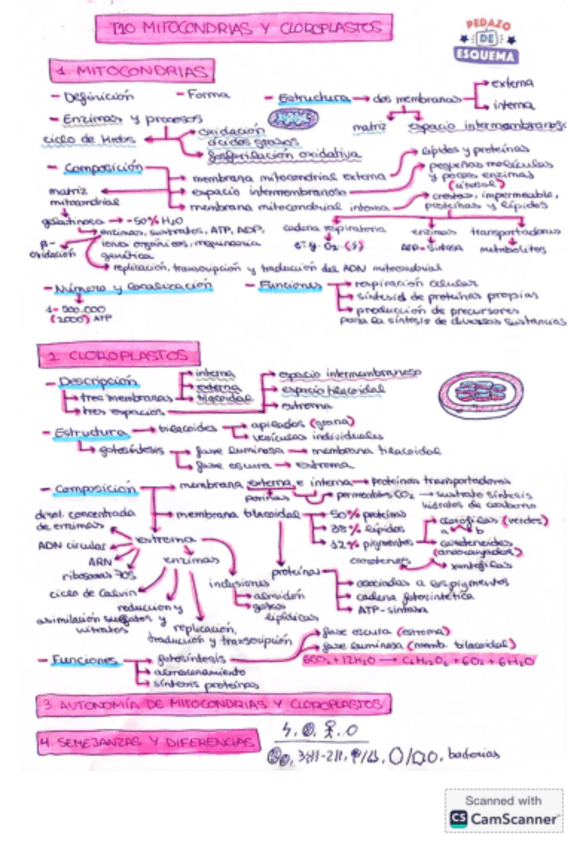 T10 MITOCONDRIAS Y CLOROPLASTOS
PEDAZO
DE
ESQUEMA
1. MITOCONDRIAS
- Definición - Forma - Estructura → dos membranas → externa
interna
matriz espacio intermembranoso
- Enzimas y procesos
ciclo de Krebs
oxidación
ácidos grasos
fosforilación oxidativa
- Composición
membrana mitocondrial externa → lípidos y proteínas
espacio intermembranoso → pequeñas moléculas
y pocas enzimas
(citosol)
membrana mitocondrial interna → crestas, impermeable,
proteínas y lípidos
matriz
mitocondrial
gelatinosa → ~50% H2O
enzimas, sustratos, ATP, ADP,
iones orgánicos, maquinaria
genética
β-
oxidación
replicación, transcripción y traducción del ADN mitocondrial
cadena respiratoria
e- y O2 (5)
enzimas
ATP-sintasa
transportadoras
metabolitos
- Número y localización
1-500.000
(2000) ATP
- Funciones → respiración celular
síntesis de proteínas propias
producción de precursores
para la síntesis de diversas sustancias
2. CLOROPLASTOS
- Descripción
tres membranas → interna
externa
tilacoidal
tres espacios → espacio intermembranoso
espacio tilacoidal
estroma
- Estructura → tilacoides → apilados (grana)
vesículas individuales
fotosíntesis → fase luminosa → membrana tilacoidal
fase oscura → estroma
- Composición → membrana externa e interna → proteínas transportadoras
porinas permeables CO2 → sustrato síntesis
hidratos de carbono
membrana tilacoidal → 50% proteínas
38% lípidos
12% pigmentos → clorofilas (verdes)
a b
carotenoides
(anaranjados)
carotenos xantofilas
proteínas → asociadas a los pigmentos
cadena fotosintética
ATP-sintasa
estroma
disol. concentrada
de enzimas
ADN circular
ARN
ribosomas 70S
enzimas
ciclo de Calvin
reducción y
asimilación sulfatos y
nitratos
replicación,
traducción y transcripción
inclusiones
almidón
gotas
lipídicas
- Funciones → fotosíntesis → fase oscura (estroma)
fase luminosa (memb. tilacoidal)
6CO2 + 12H2O → C6H12O6 + 6O2 + 6H2O
almacenamiento
síntesis proteínas
3. AUTONOMÍA DE MITOCONDRIAS Y CLOROPLASTOS
4. SEMEJANZAS Y DIFERENCIAS
bacterias
Scanned with
CS CamScanner